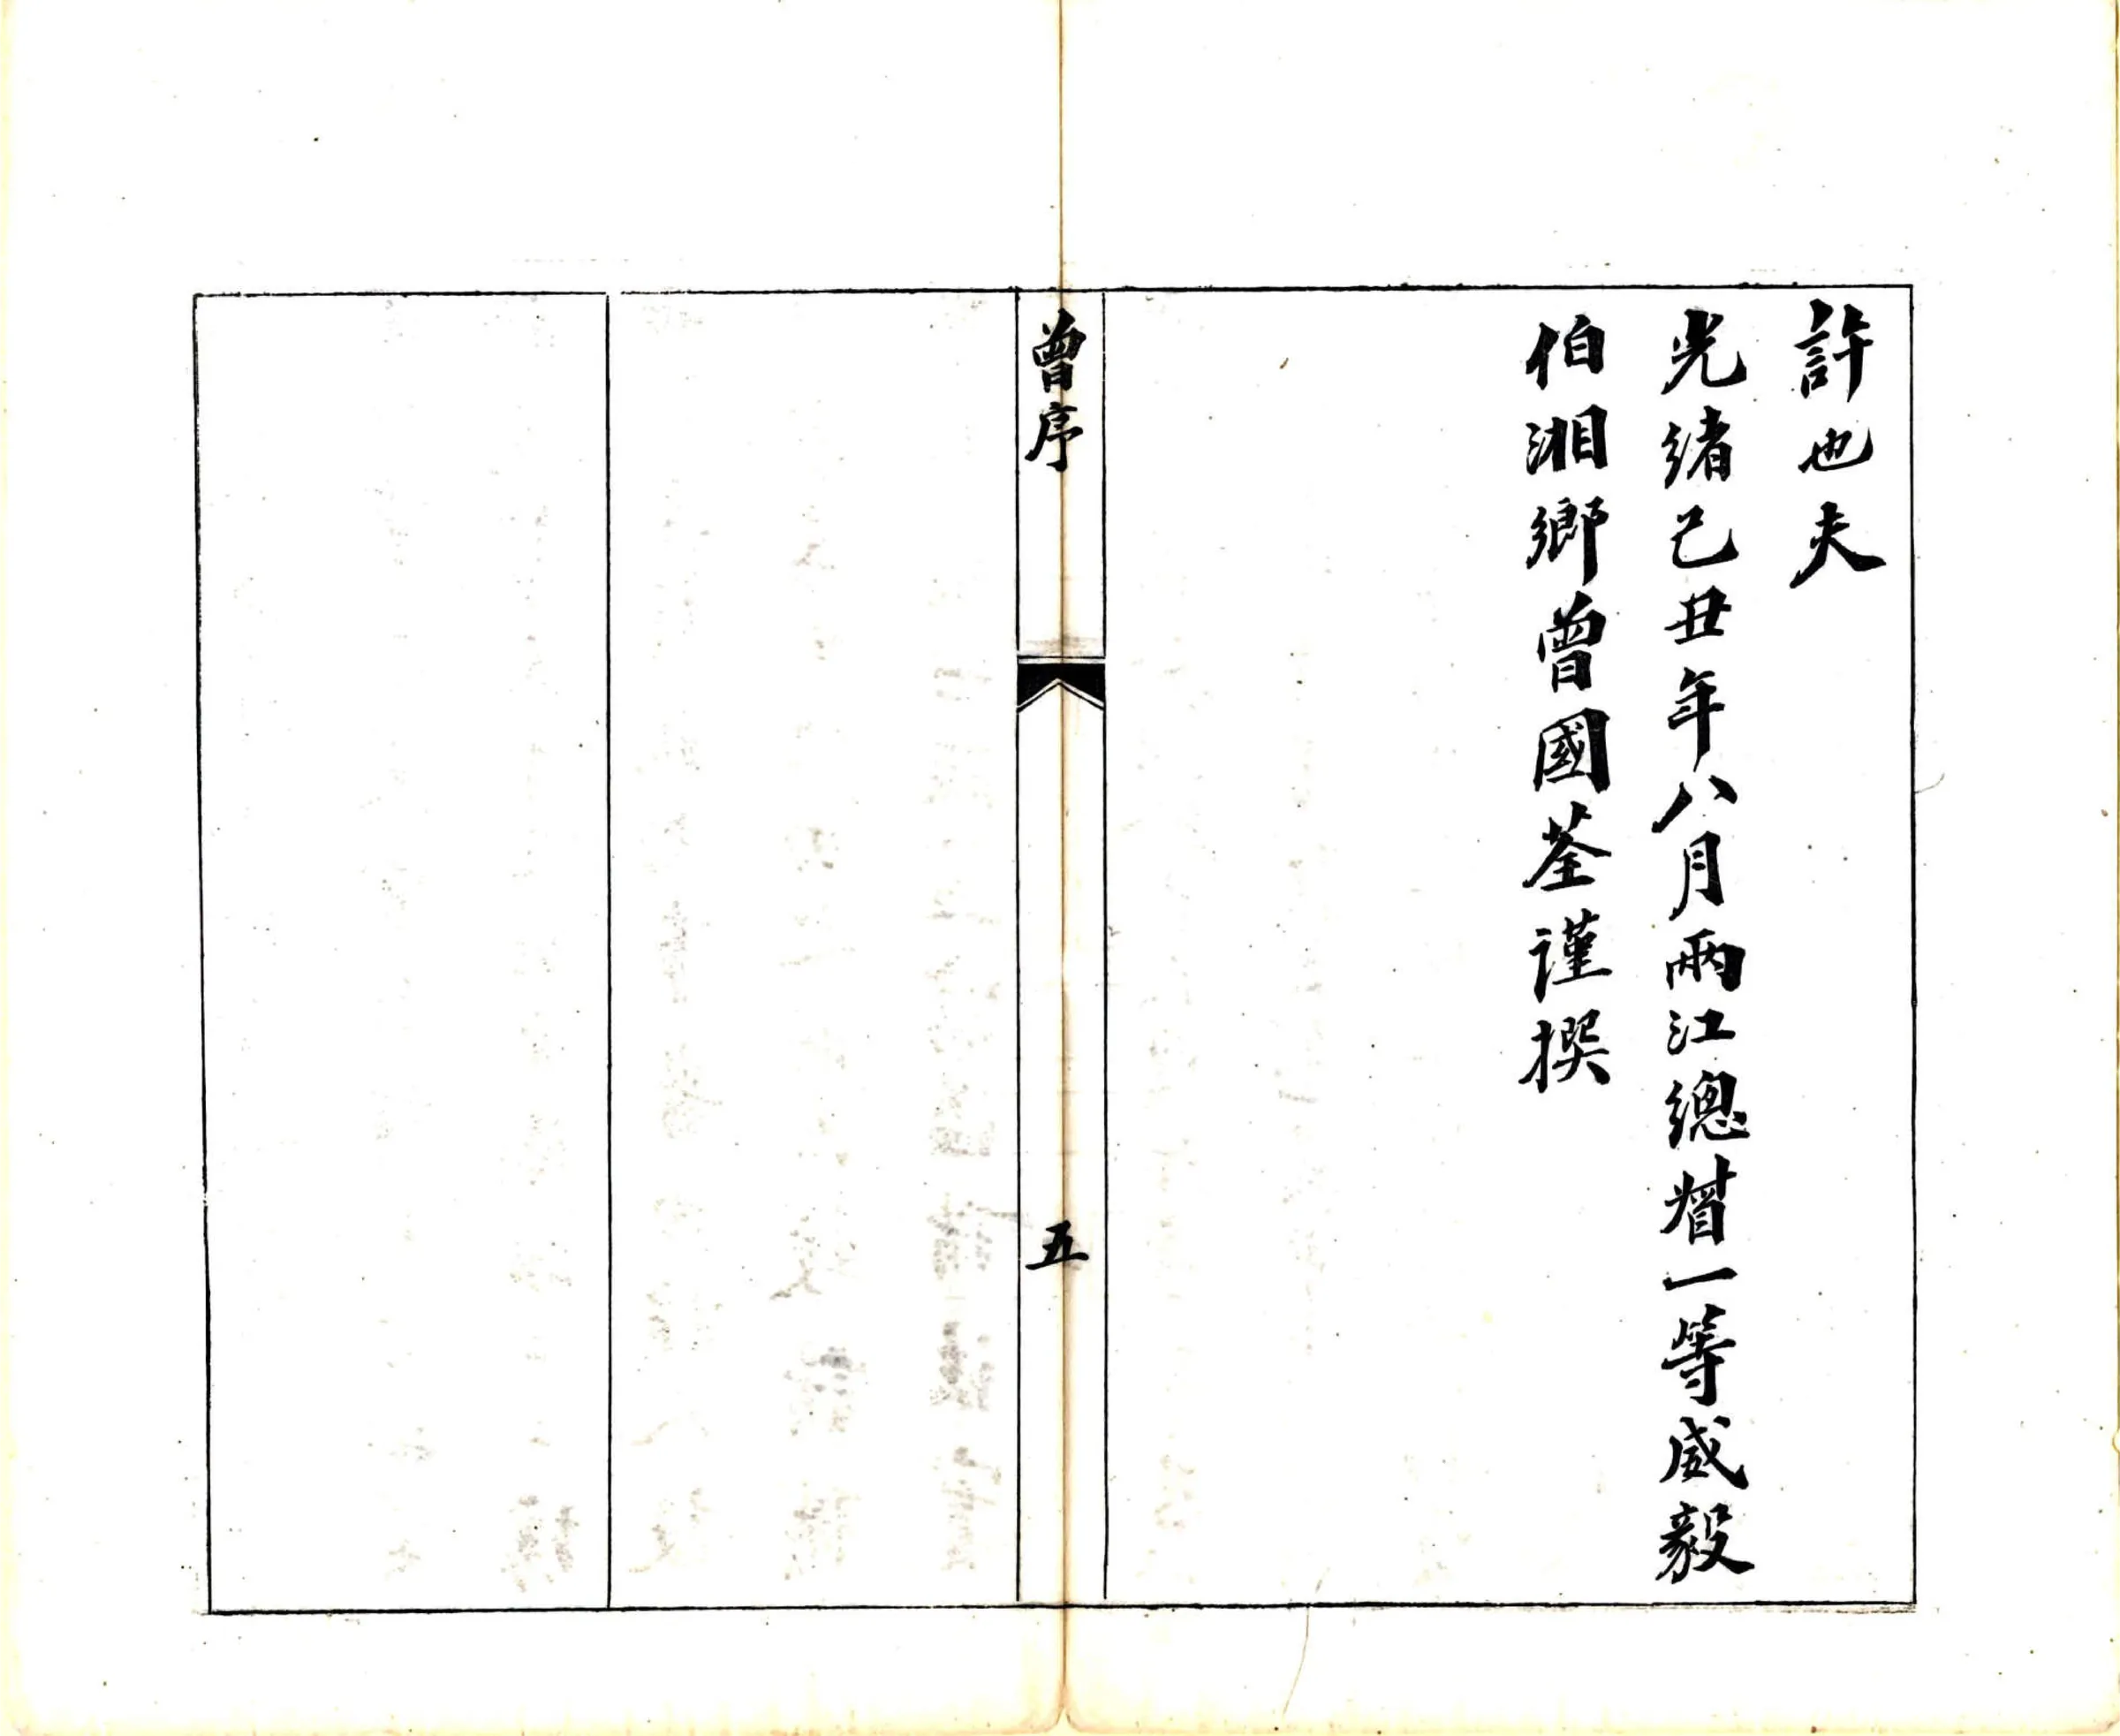 許也夫
光緒己丑年八月兩江總督一等威毅
伯湘鄉曾國荃謹撰
曾序
五